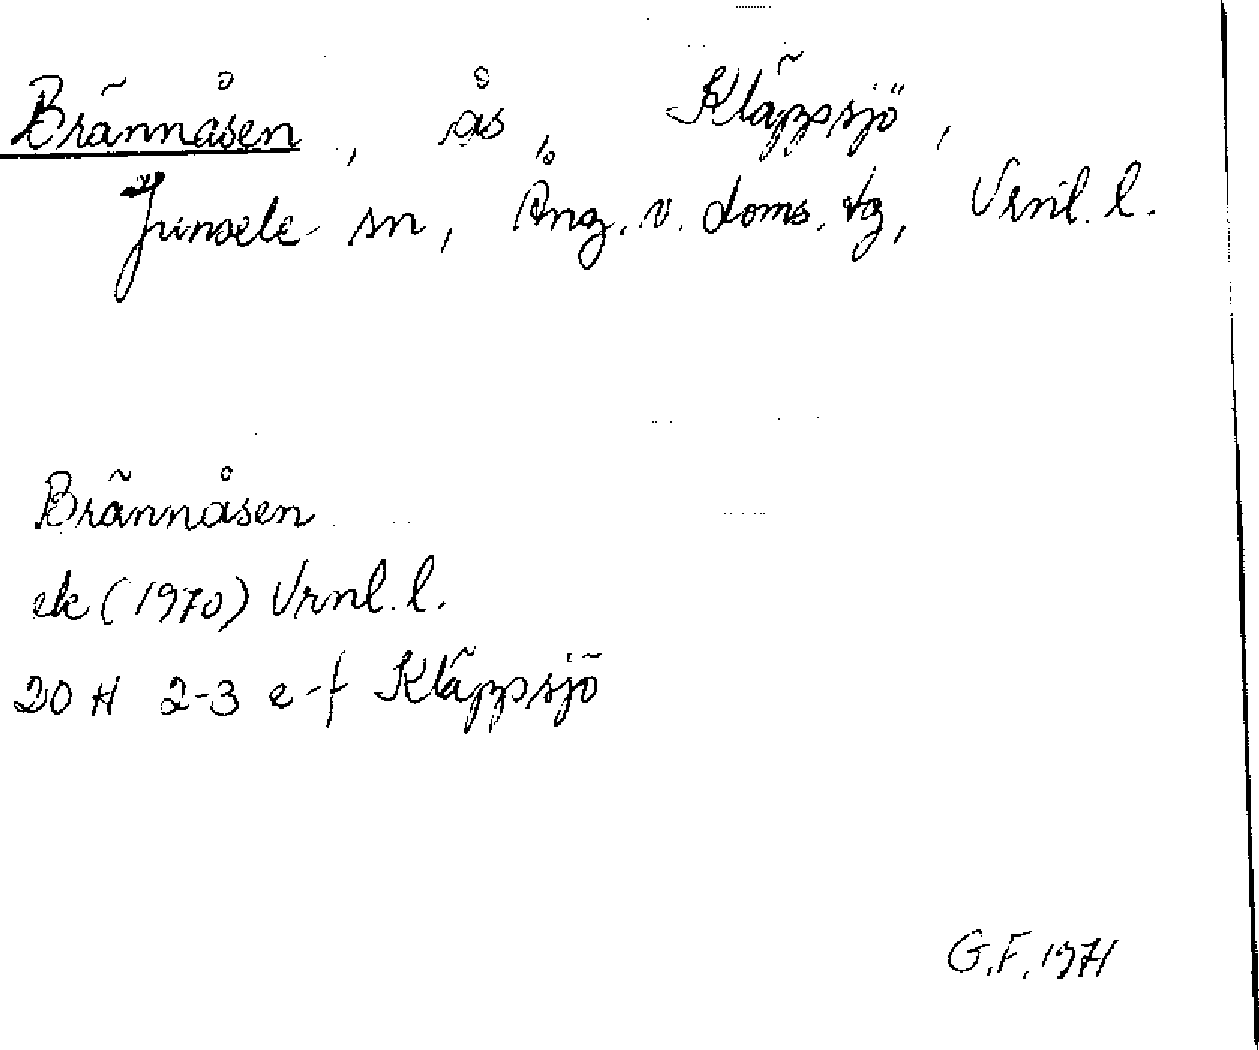 Brännåsen, ås, Kläppsjö,
Junsele sn, Ång. v. doms. tg, Vrnl. l.
Brännåsen
ek (1970) Vrnl. l.
20 H 2-3 e-f Kläppsjö
G.F. 1971